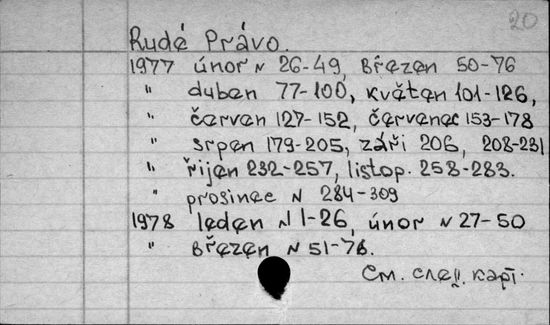 20
Rudé Právo.
1977 únor N 26-49, březen 50-76
" duben 77-100, květen 101-126,
" červen 127-152, červenec 153-178
" srpen 179-205, září 206, 208-231
" říjen 232-257, listop. 258-283.
" prosinec N 284-309
1978 leden N 1-26, únor N 27-50
" březen N 51-76.
См. след. карт.